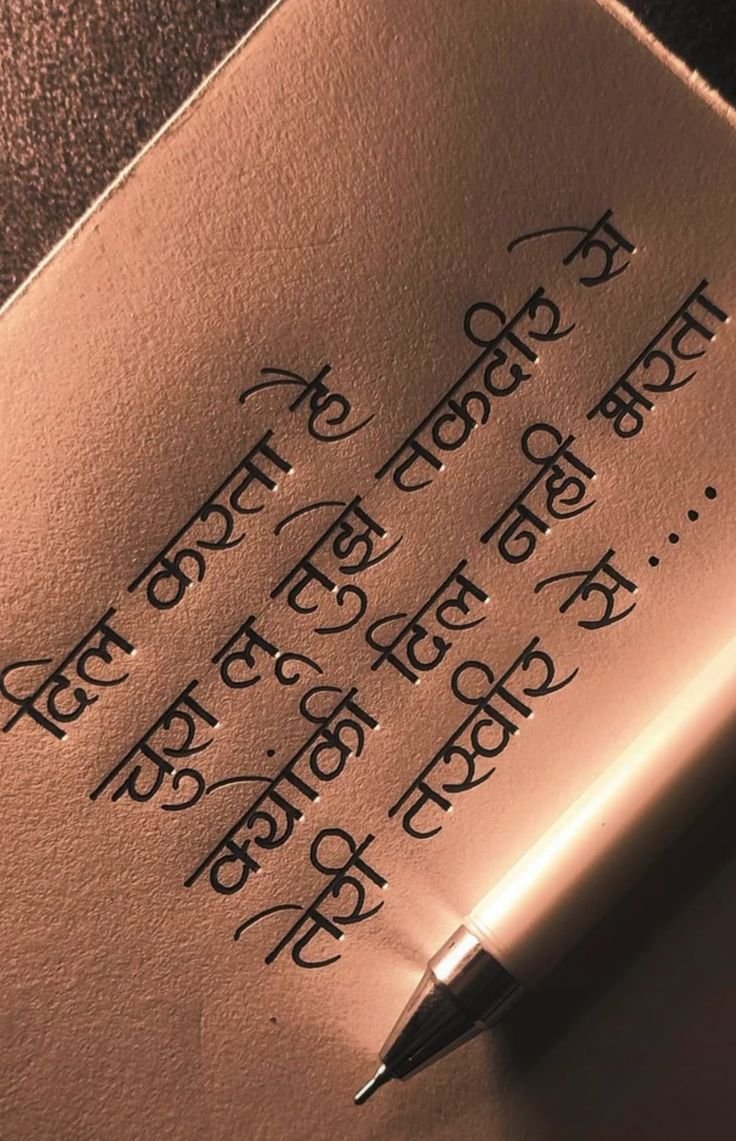 दिल करता है
चुरा लू तुझे तकदीर से
क्योंकी दिल नही भरता
तेरी तस्वीर से....